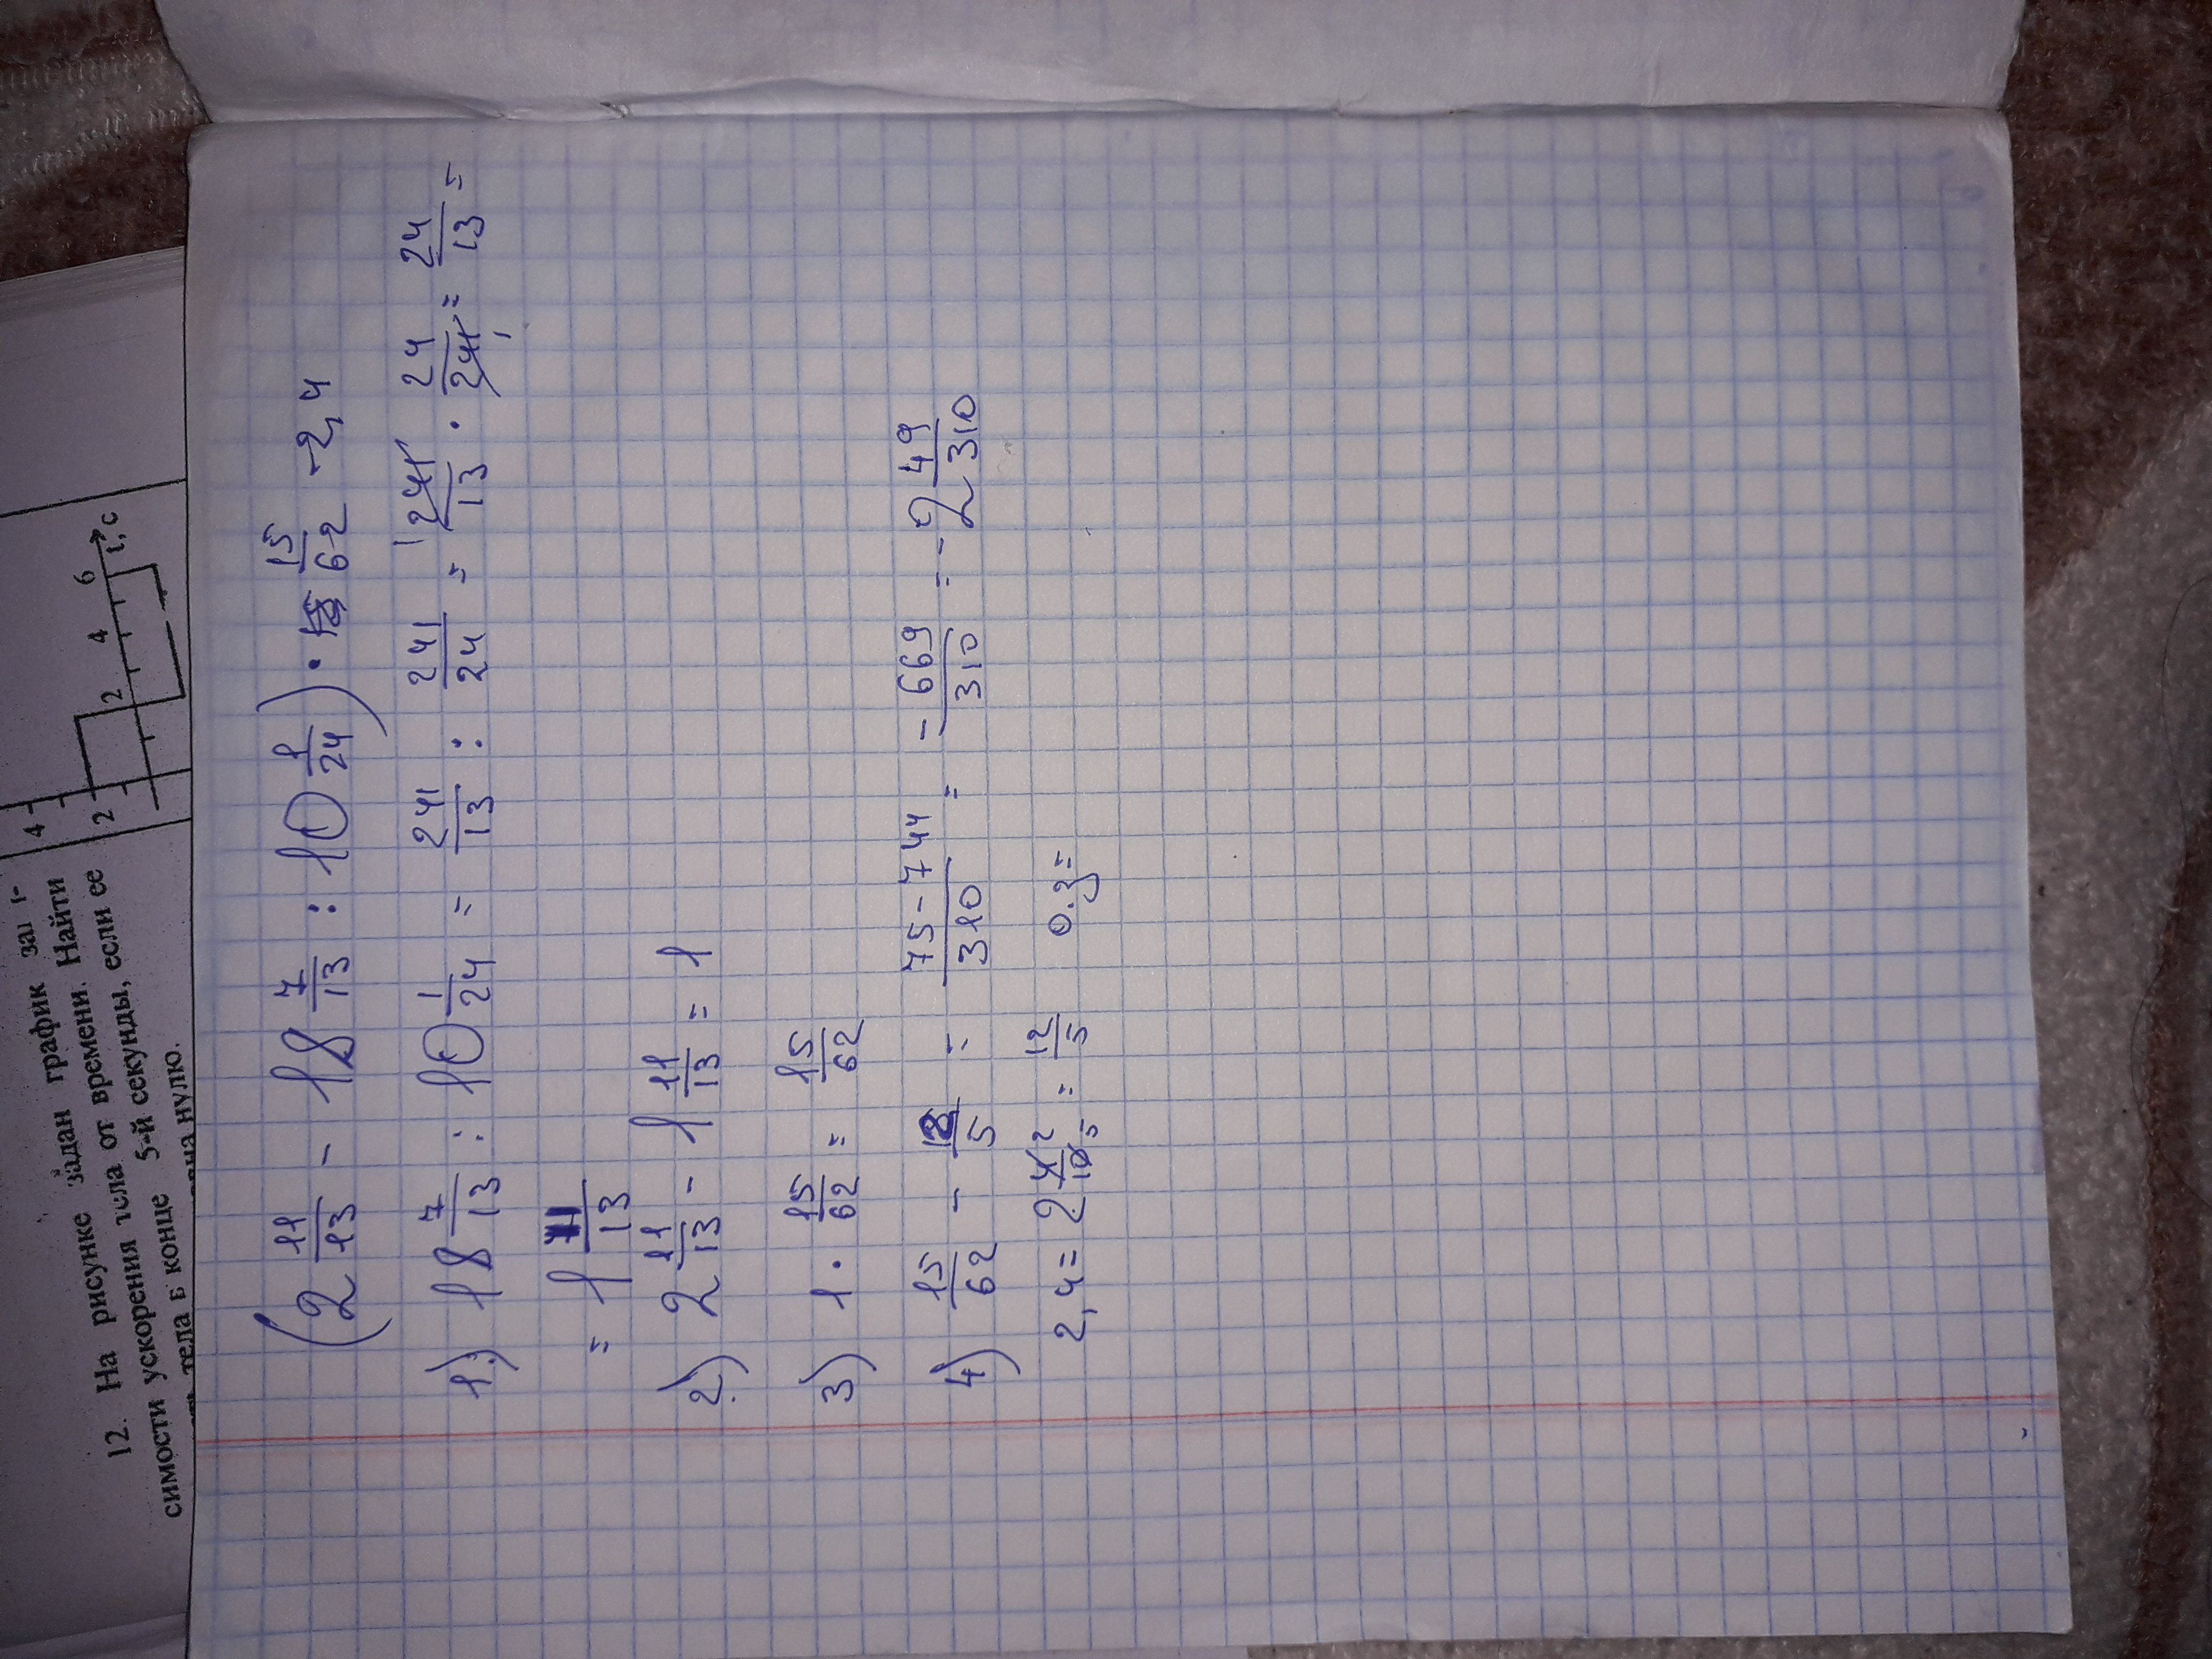 12. На рисунке задан график
симости ускорения тела от времени. Найти
тела в конце 5-й секунды, если ее
нулю.
4
2
2 4 6 t, с
(2 11/13 - 18 7/13 : 10 1/24) · 15/62 - 2,4
1) 18 7/13 : 10 1/24 = 241/13 : 241/24 = 241/13 · 24/241 = 24/13 =
= 1 11/13
2) 2 11/13 - 1 11/13 = 1
3) 1 · 15/62 = 15/62
4) 15/62 - 12/5 = 75-744/310 = -669/310 = -2 49/310
2,4 = 2 4/10 = 12/5